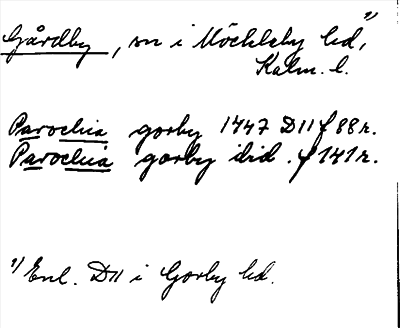 1)
Gårdby, sn i Möckleby hd,
Kalm. l.
Parochia gorby 1447 D11 f 88 r.
Parochia gorby ibid. f 141 r.
1) Enl. D11 i Gorby hd.